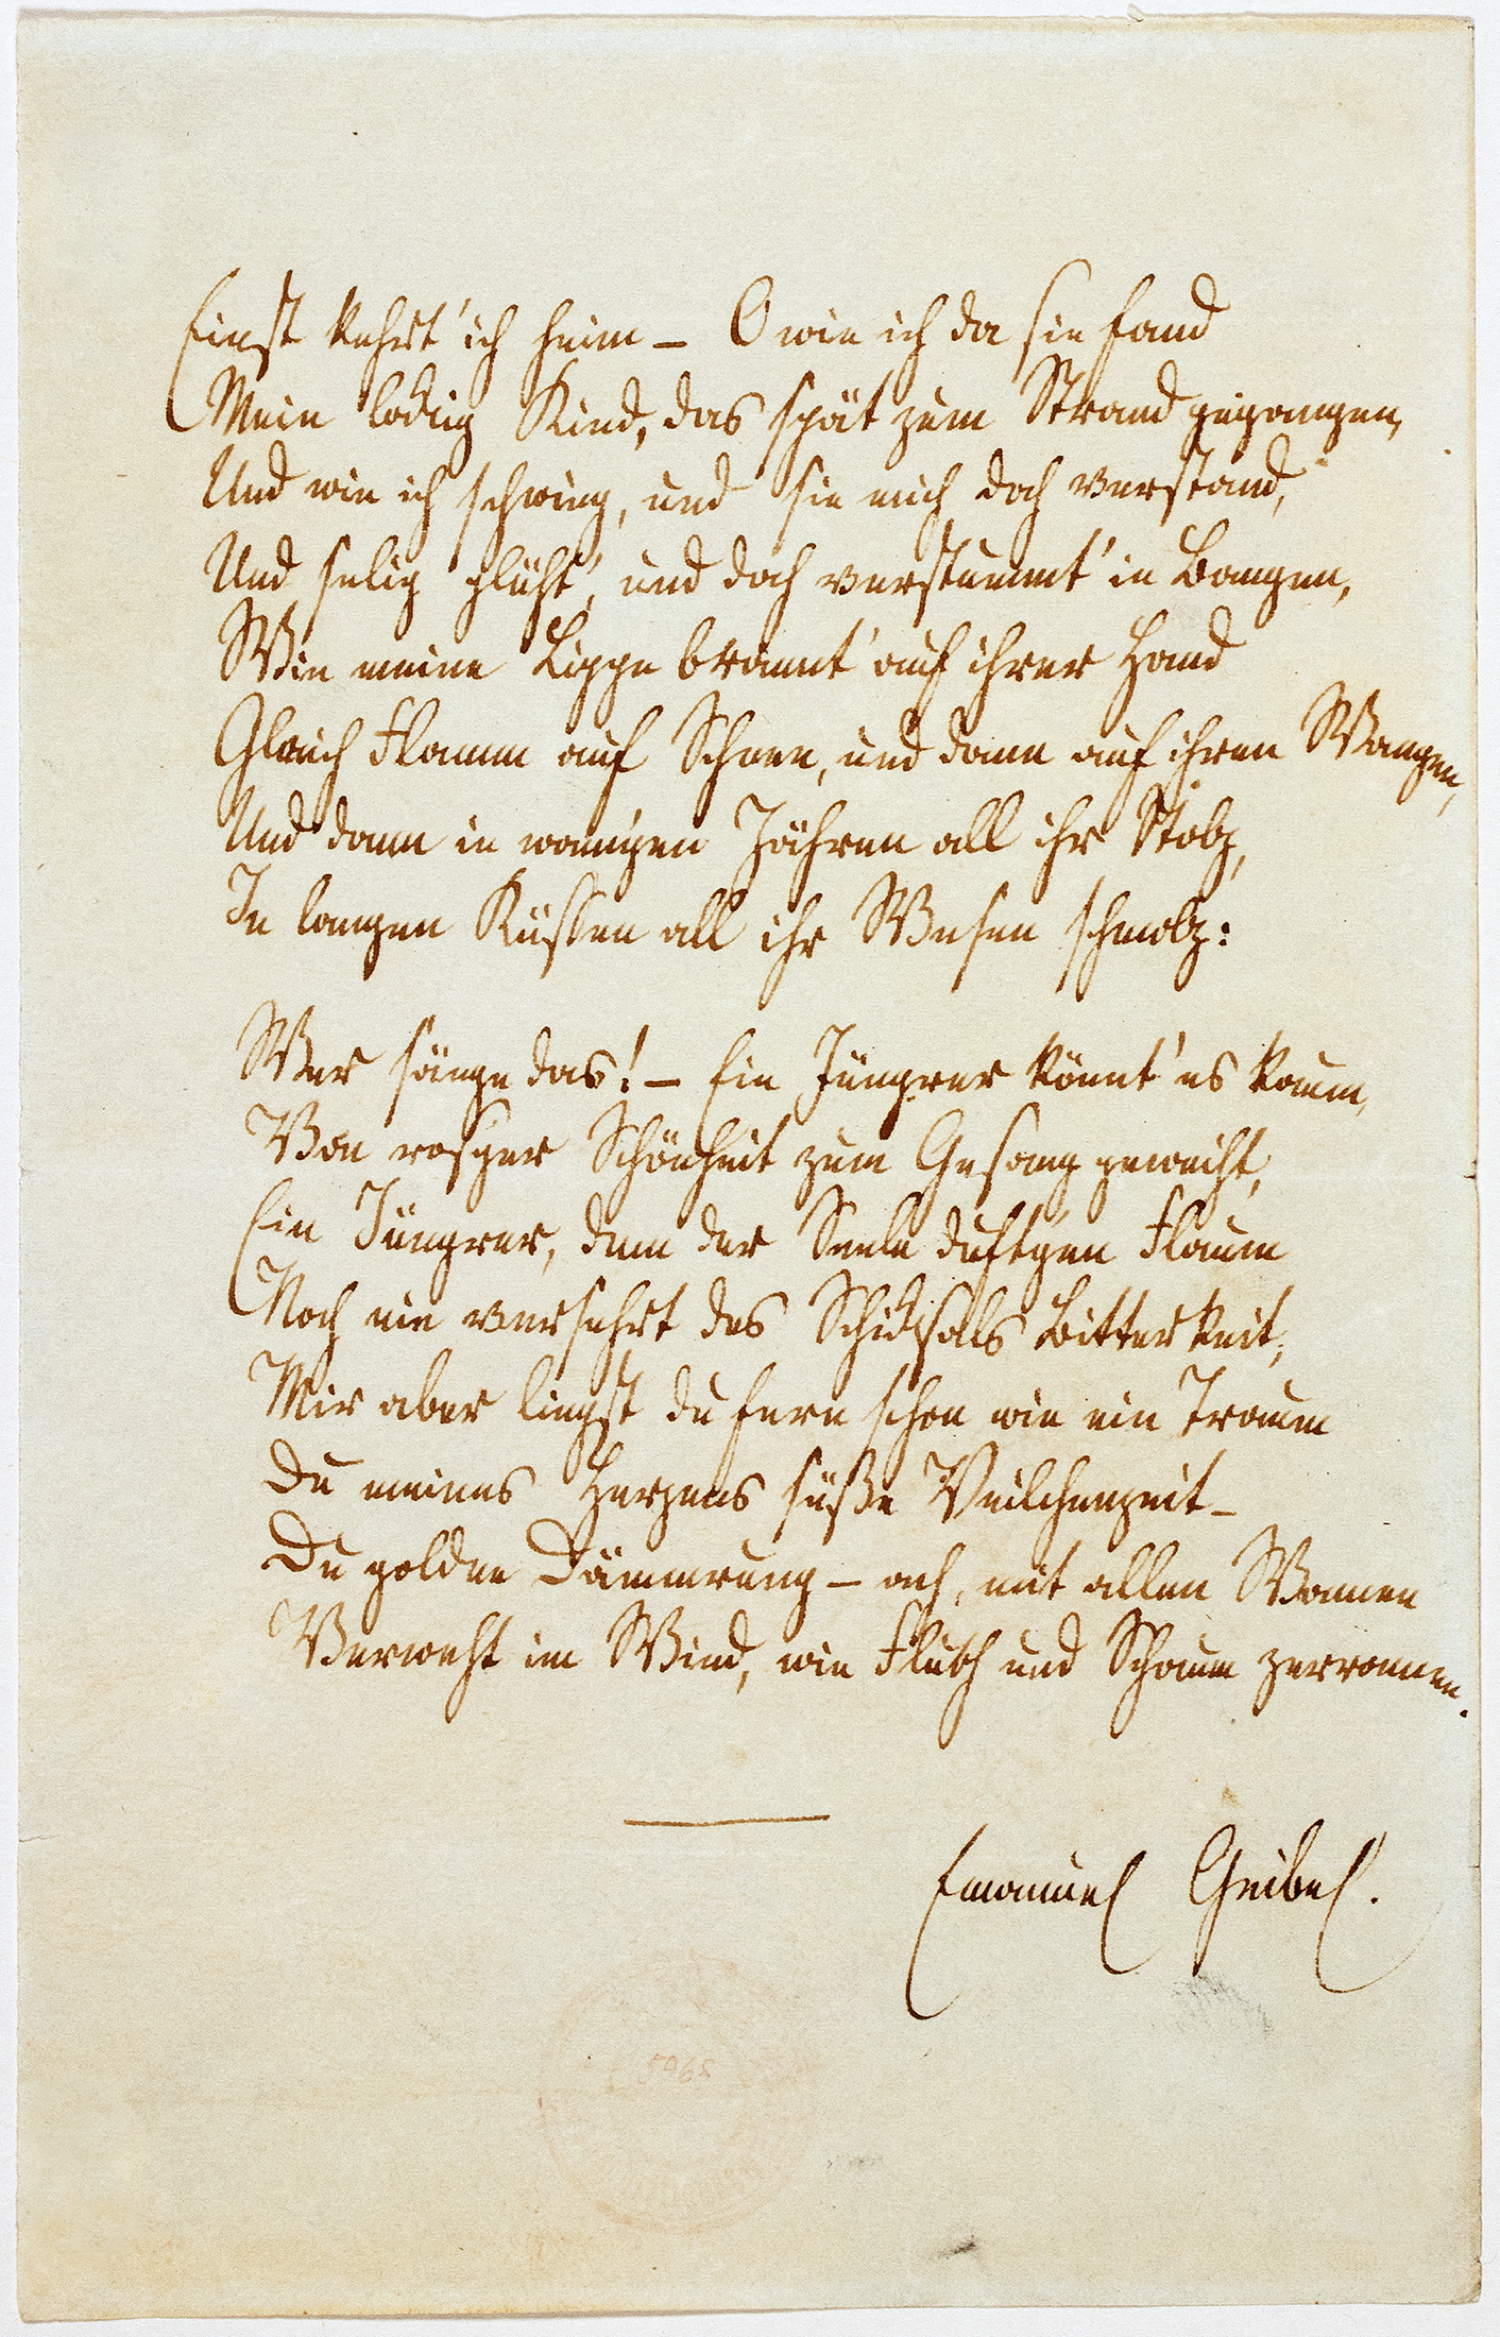 Einst kehrt' ich heim – O wie ich da sie fand
Mein lockig Kind, das spät zum Strand gegangen,
Und wie ich schwieg, und sie mich doch verstand,
Und selig glüht', und doch verstummt' in Bangen,
Wie meine Lippe brannt' auf ihrer Hand
Gleich Flamm auf Schnee, und dann auf ihren Wangen,
Und dann in wonn'gen Zähren all ihr Stolz,
In langen Küssen all ihr Wesen schmolz:
Wer sänge das! – Ein Jüngrer könnt' es kaum,
Von ros'ger Schönheit zum Gesang geweiht,
Ein Jüngrer, dem der Seele duft'gen Flaum
Noch nie versehrt des Schicksals Bitterkeit;
Mir aber liegst du fern schon wie ein Traum
Du meines Herzens süße Veilchenzeit –
Du goldne Dämmrung – ach, mit allen Wonnen
Verweht im Wind, wie Fluth und Schaum zerronnen.
Emanuel Geibel.